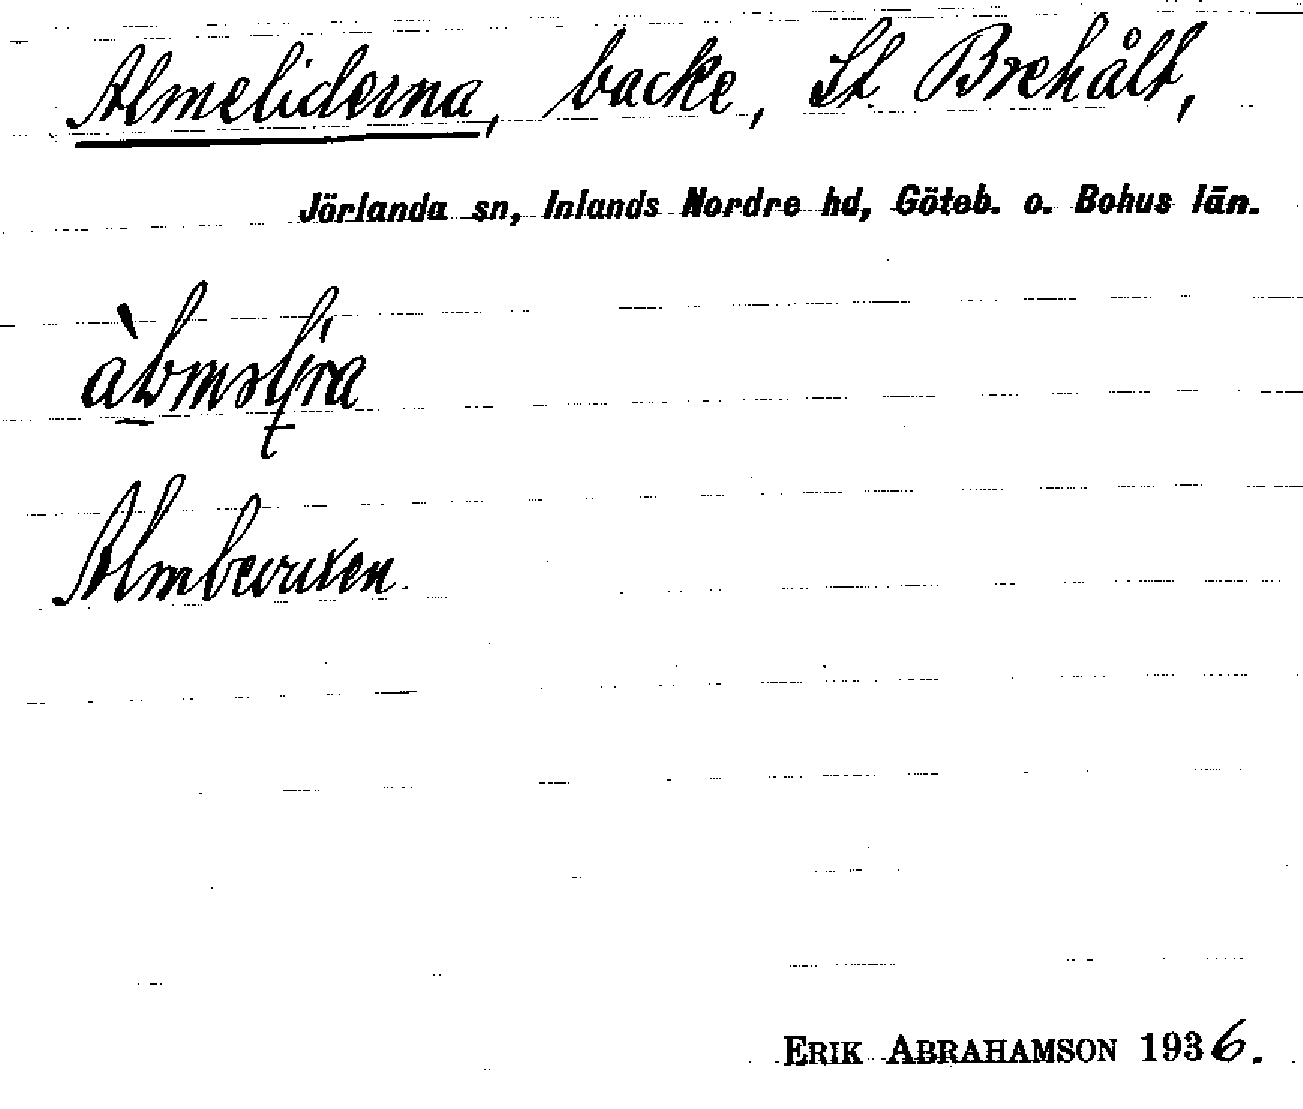 Almeliderna, backe, St Brehålt,
Jörlanda sn, Inlands Nordre hd, Göteb. o. Bohus län.
Almbevuxen.
ERIK ABRAHAMSON 1936.